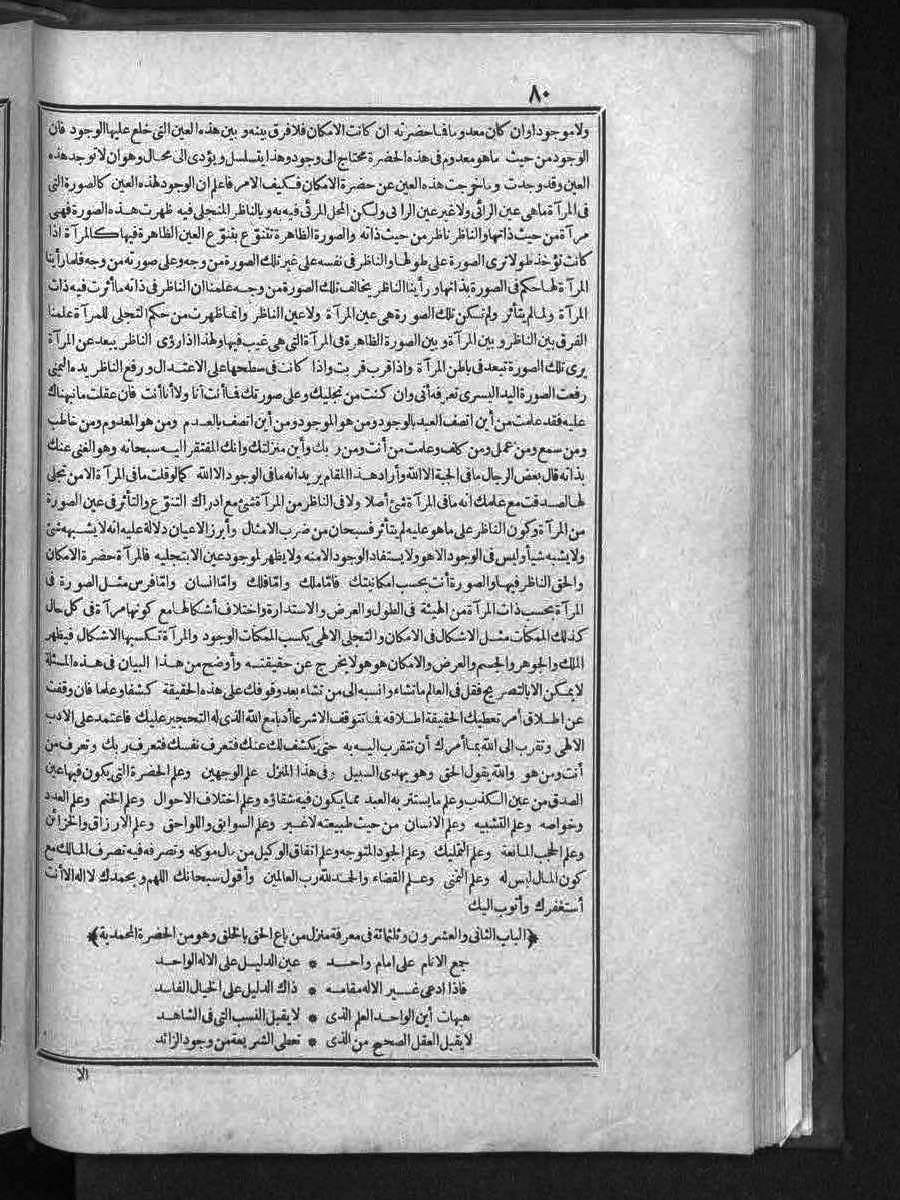 ٨٠
ولا موجودا وان كان معدوما فما حضرته ان كانت الامكان فلا فرق بينه وبين هذه العين التى خلع عليها الوجود فان
الوجود من حيث ما هو معدوم فى هذه الحضرة محتاج الى وجود وهذا يتسلسل ويؤدى الى محال وهو ان لا توجد هذه
العين وقد وجدت وما خرجت هذه العين عن حضرة الامكان فكيف الامر فاعلم ان الوجود لهذه العين كالصورة التى
فى المرآة ما هى عين الرائى ولا غير عين الرائى ولكن المحل المرئى فيه به وبالناظر المتجلى فيه ظهرت هذه الصورة فهى
مرآة من حيث ذاتها والناظر ناظر من حيث ذاته والصورة الظاهرة تتنوّع بتنوّع العين الظاهرة فيها كالمرآة اذا
كانت تؤخذ طولا ترى الصورة على طولها والناظر فى نفسه على غير تلك الصورة من وجه وعلى صورته من وجه فلما رأينا
المرآة لها حكم فى الصورة بذاتها ورأينا الناظر يخالف تلك الصورة من وجه علمنا ان الناظر فى ذاته ما أثرت فيه ذات
المرآة ولما لم يتأثر ولم تكن تلك الصورة هى عين المرآة ولا عين الناظر وانما ظهرت من حكم التجلى للمرآة علمنا
الفرق بين الناظر وبين المرآة وبين الصورة الظاهرة فى المرآة التى هى غيب فيها ولهذا اذا رؤى الناظر يبعد عن المرآة
يرى تلك الصورة تبعد فى باطن المرآة واذا قرب قربت واذا كانت فى سطحها على الاعتدال ورفع الناظر يده اليمنى
رفعت الصورة اليد اليسرى تعرفه أنى وان كنت من تجليك وعلى صورتك فما أنت أنا ولا أنا أنت فان عقلت ما نبهناك
عليه فقد علمت من أين اتصف العبد بالوجود ومن هو الموجود ومن أين اتصف بالعدم ومن هو المعدوم ومن خاطب
ومن سمع ومن عمل ومن كلف وعلمت من أنت ومن ربك وأين منزلتك وانك المفتقر اليه سبحانه وهو الغنى عنك
بذاته قال بعض الرجال ما فى الجبة الا الله وأراد هذا المقام يريد انه ما فى الوجود الا الله كما لو قلت ما فى المرآة الا من تجلى
لها لصدقت مع علمك انه ما فى المرآة شئ أصلا ولا فى الناظر من المرآة شئ مع ادراك التنوّع والتأثر فى عين الصورة
من المرآة وكون الناظر على ما هو عليه لم يتأثر فسبحان من ضرب الامثال وأبرز الاعيان دلالة عليه انه لا يشبهه شئ
ولا يشبه شيأ وليس فى الوجود الا هو ولا يستفاد الوجود الا منه ولا يظهر لموجود عين الا بتجليه فالمرآة حضرة الامكان
والحق الناظر فيها والصورة أنت بحسب امكانيتك فاما ملك واما فلك واما انسان واما فرس مثل الصورة فى
المرآة بحسب ذات المرآة من الهيئة فى الطول والعرض والاستدارة واختلاف أشكالها مع كونها مرآة فى كل حال
كذلك الممكنات مثل الاشكال فى الامكان والتجلى الالهى يكسب الممكنات الوجود والمرآة تكسبها الاشكال فيظهر
الملك والجوهر والجسم والعرض والامكان هو هو لا يخرج عن حقيقته وأوضح من هذا البيان فى هذه المسئلة
لا يمكن الا بالتصريح فقل فى العالم ما تشاء وانسبه الى من تشاء بعد وقوفك على هذه الحقيقة كشفا وعلما فان وقفت
عن اطلاق أمر تعطيك الحقيقة اطلاقه فما تتوقف الا شرعا أدبا مع الله الذى له التحجير عليك فاعتمد على الادب
الالهى وتقرب الى الله بما أمرك أن تتقرب اليه به حتى يكشف لك عنك فتعرف نفسك فتعرف ربك وتعرف من
أنت ومن هو والله يقول الحق وهو يهدى السبيل وفى هذا المنزل علم الوجهين وعلم الحضرة التى يكون فيها عين
الصدق من عين الكذب وعلم ما يستتر به العبد مما يكون فيه شقاؤه وعلم اختلاف الاحوال وعلم الختم وعلم العدد
وخواصه وعلم التشبيه وعلم الانسان من حيث طبيعته لا غير وعلم السوابق واللواحق وعلم الارزاق والخزائن
وعلم الحجب المانعة وعلم التمليك وعلم الجود المتوجه وعلم انفاق الوكيل من مال موكله وتصرفه فيه تصرف المالك مع
كون المال ليس له وعلم التمنى وعلم القضاء والحمد لله رب العالمين وأقول سبحانك اللهم وبحمدك لا اله الا أنت
أستغفرك وأتوب اليك
﴿الباب الثانى والعشرون وثلثمائة فى معرفة منزل من باع الحق بالخلق وهو من الحضرة المحمدية﴾
جمع الانام على امام واحد * عين الدليل على الاله الواحد
فاذا ادعى غير الاله مقامه * ذاك الدليل على الخيال الفاسد
هيهات أين الواحد العلم الذى * لا يقبل النسب التى فى الشاهد
لا يقبل العقل الصحيح من الذى * تعطى الشريعة من وجود الزائد
الا